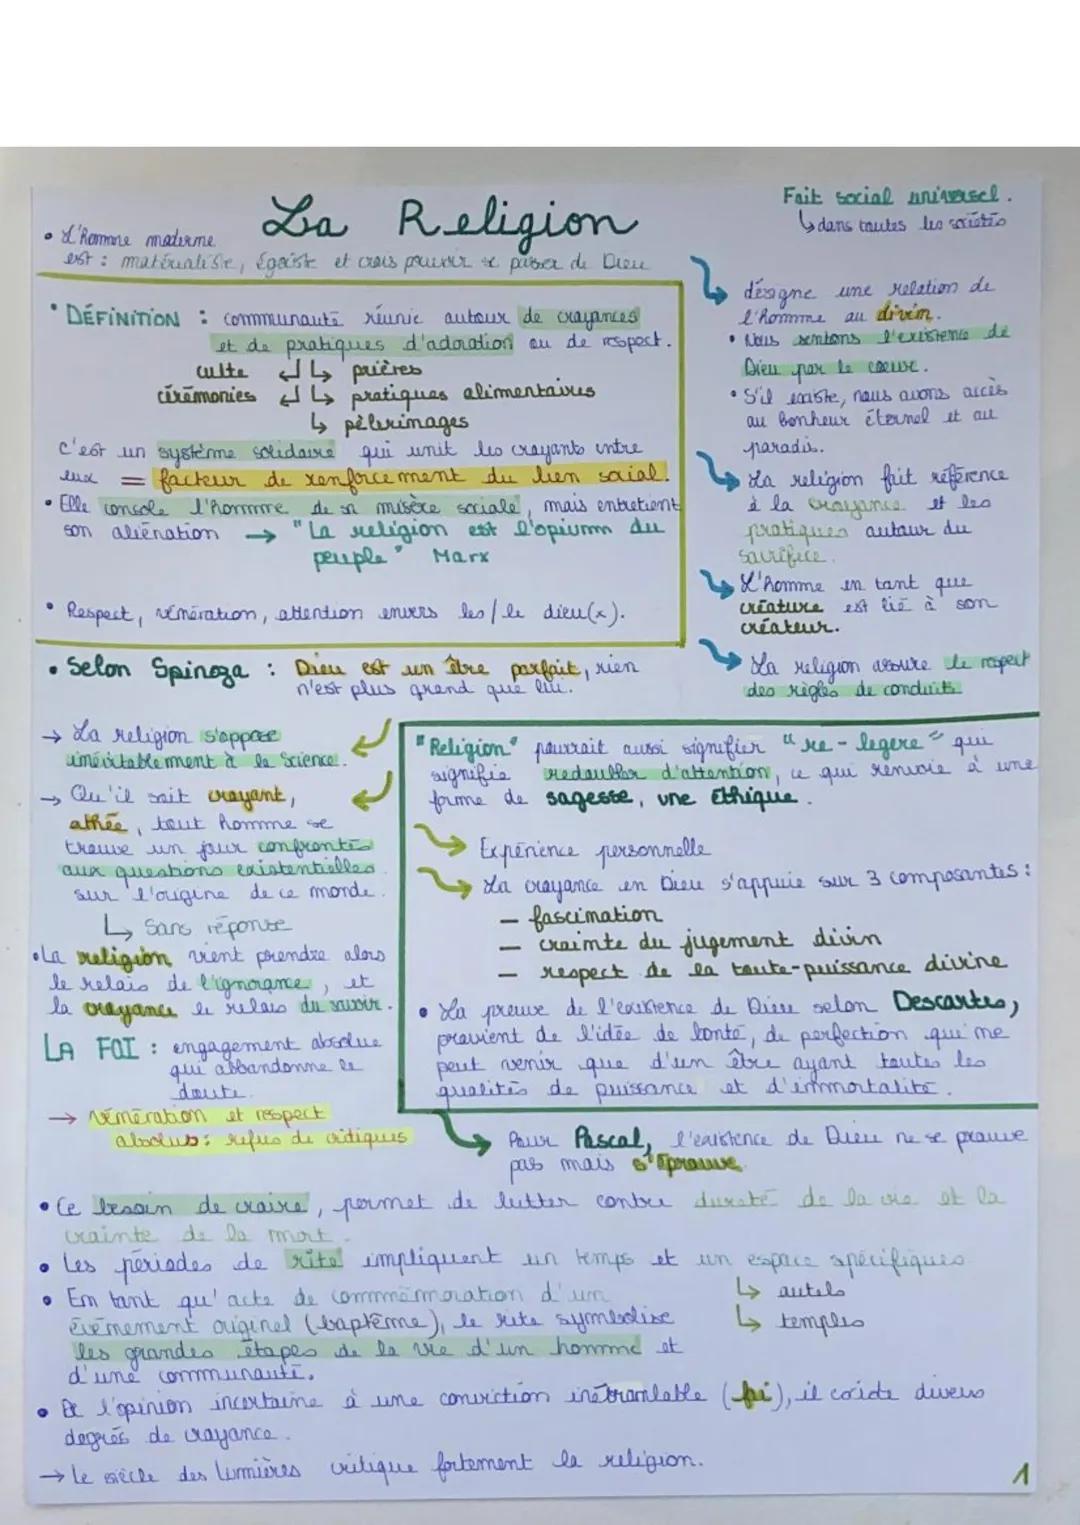 La Religion
Fait social universel.
↳ dans toutes les sociétés
• L'homme moderne
est : matérialiste, égoïste et crois pouvoir se passer de Dieu
• DÉFINITION : communauté réunie autour de croyances
et de pratiques d'adoration ou de respect.
culte ↲ ↳ prières
cérémonies ↲ ↳ pratiques alimentaires
↳ pèlerimages
C'est un système solidaire qui unit les croyants entre
eux = facteur de renforcement du lien social.
• Elle console l'homme de sa misère sociale, mais entretient
son aliénation → "La religion est l'opium du
peuple" Marx
• Respect, vénération, attention envers les/le dieu(x).
désigne une relation de
l'homme au divin.
• Nous sentons l'existence de
Dieu par le coeur.
• S'il existe, nous avons accès
au bonheur éternel et au
paradis.
La religion fait référence
à la croyance et les
pratiques autour du
sacrifice.
L'homme en tant que
créature est lié à son
créateur.
La religion assure le respect
des règles de conduits
• Selon Spinoza : Dieu est un être parfait, rien
n'est plus grand que lui.
→ La religion s'oppose
inévitablement à la Science.
→ Qu'il soit croyant,
athée, tout homme se
trouve un jour confrontés
aux questions existentielles
sur l'origine de ce monde.
↳ Sans réponse
• La religion vient prendre alors
le relais de l'ignorance, et
la croyance le relais du savoir.
LA FOI : engagement absolue
qui abbandonne le
doute.
→ vénération et respect
absolus : refus de critiques
"Religion" pourrait aussi signifier "re-legere" qui
signifie redoubler d'attention, ce qui renvoie à une
forme de sagesse, une Éthique.
Expérience personnelle
La croyance en Dieu s'appuie sur 3 composantes :
– fascination
– crainte du jugement divin
– respect de la toute-puissance divine
• La preuve de l'existence de Dieu selon Descartes,
provient de l'idée de bonté, de perfection qui ne
peut venir que d'un être ayant toutes les
qualités de puissance et d'immortalité.
Pour Pascal, l'existence de Dieu ne se prouve
pas mais s'éprouve.
• Ce besoin de croire, permet de lutter contre dureté de la vie et la
crainte de la mort.
• Les périodes de rite impliquent un temps et un espace spécifiques
↳ autels
↳ temples
• En tant qu'acte de commémoration d'un
événement originel (baptême), le rite symbolise
les grandes étapes de la vie d'un homme et
d'une communauté.
• De l'opinion incertaine à une conviction inébranlable (foi), il existe divers
degrés de croyance.
→ Le siècle des Lumières critique fortement la religion.
1